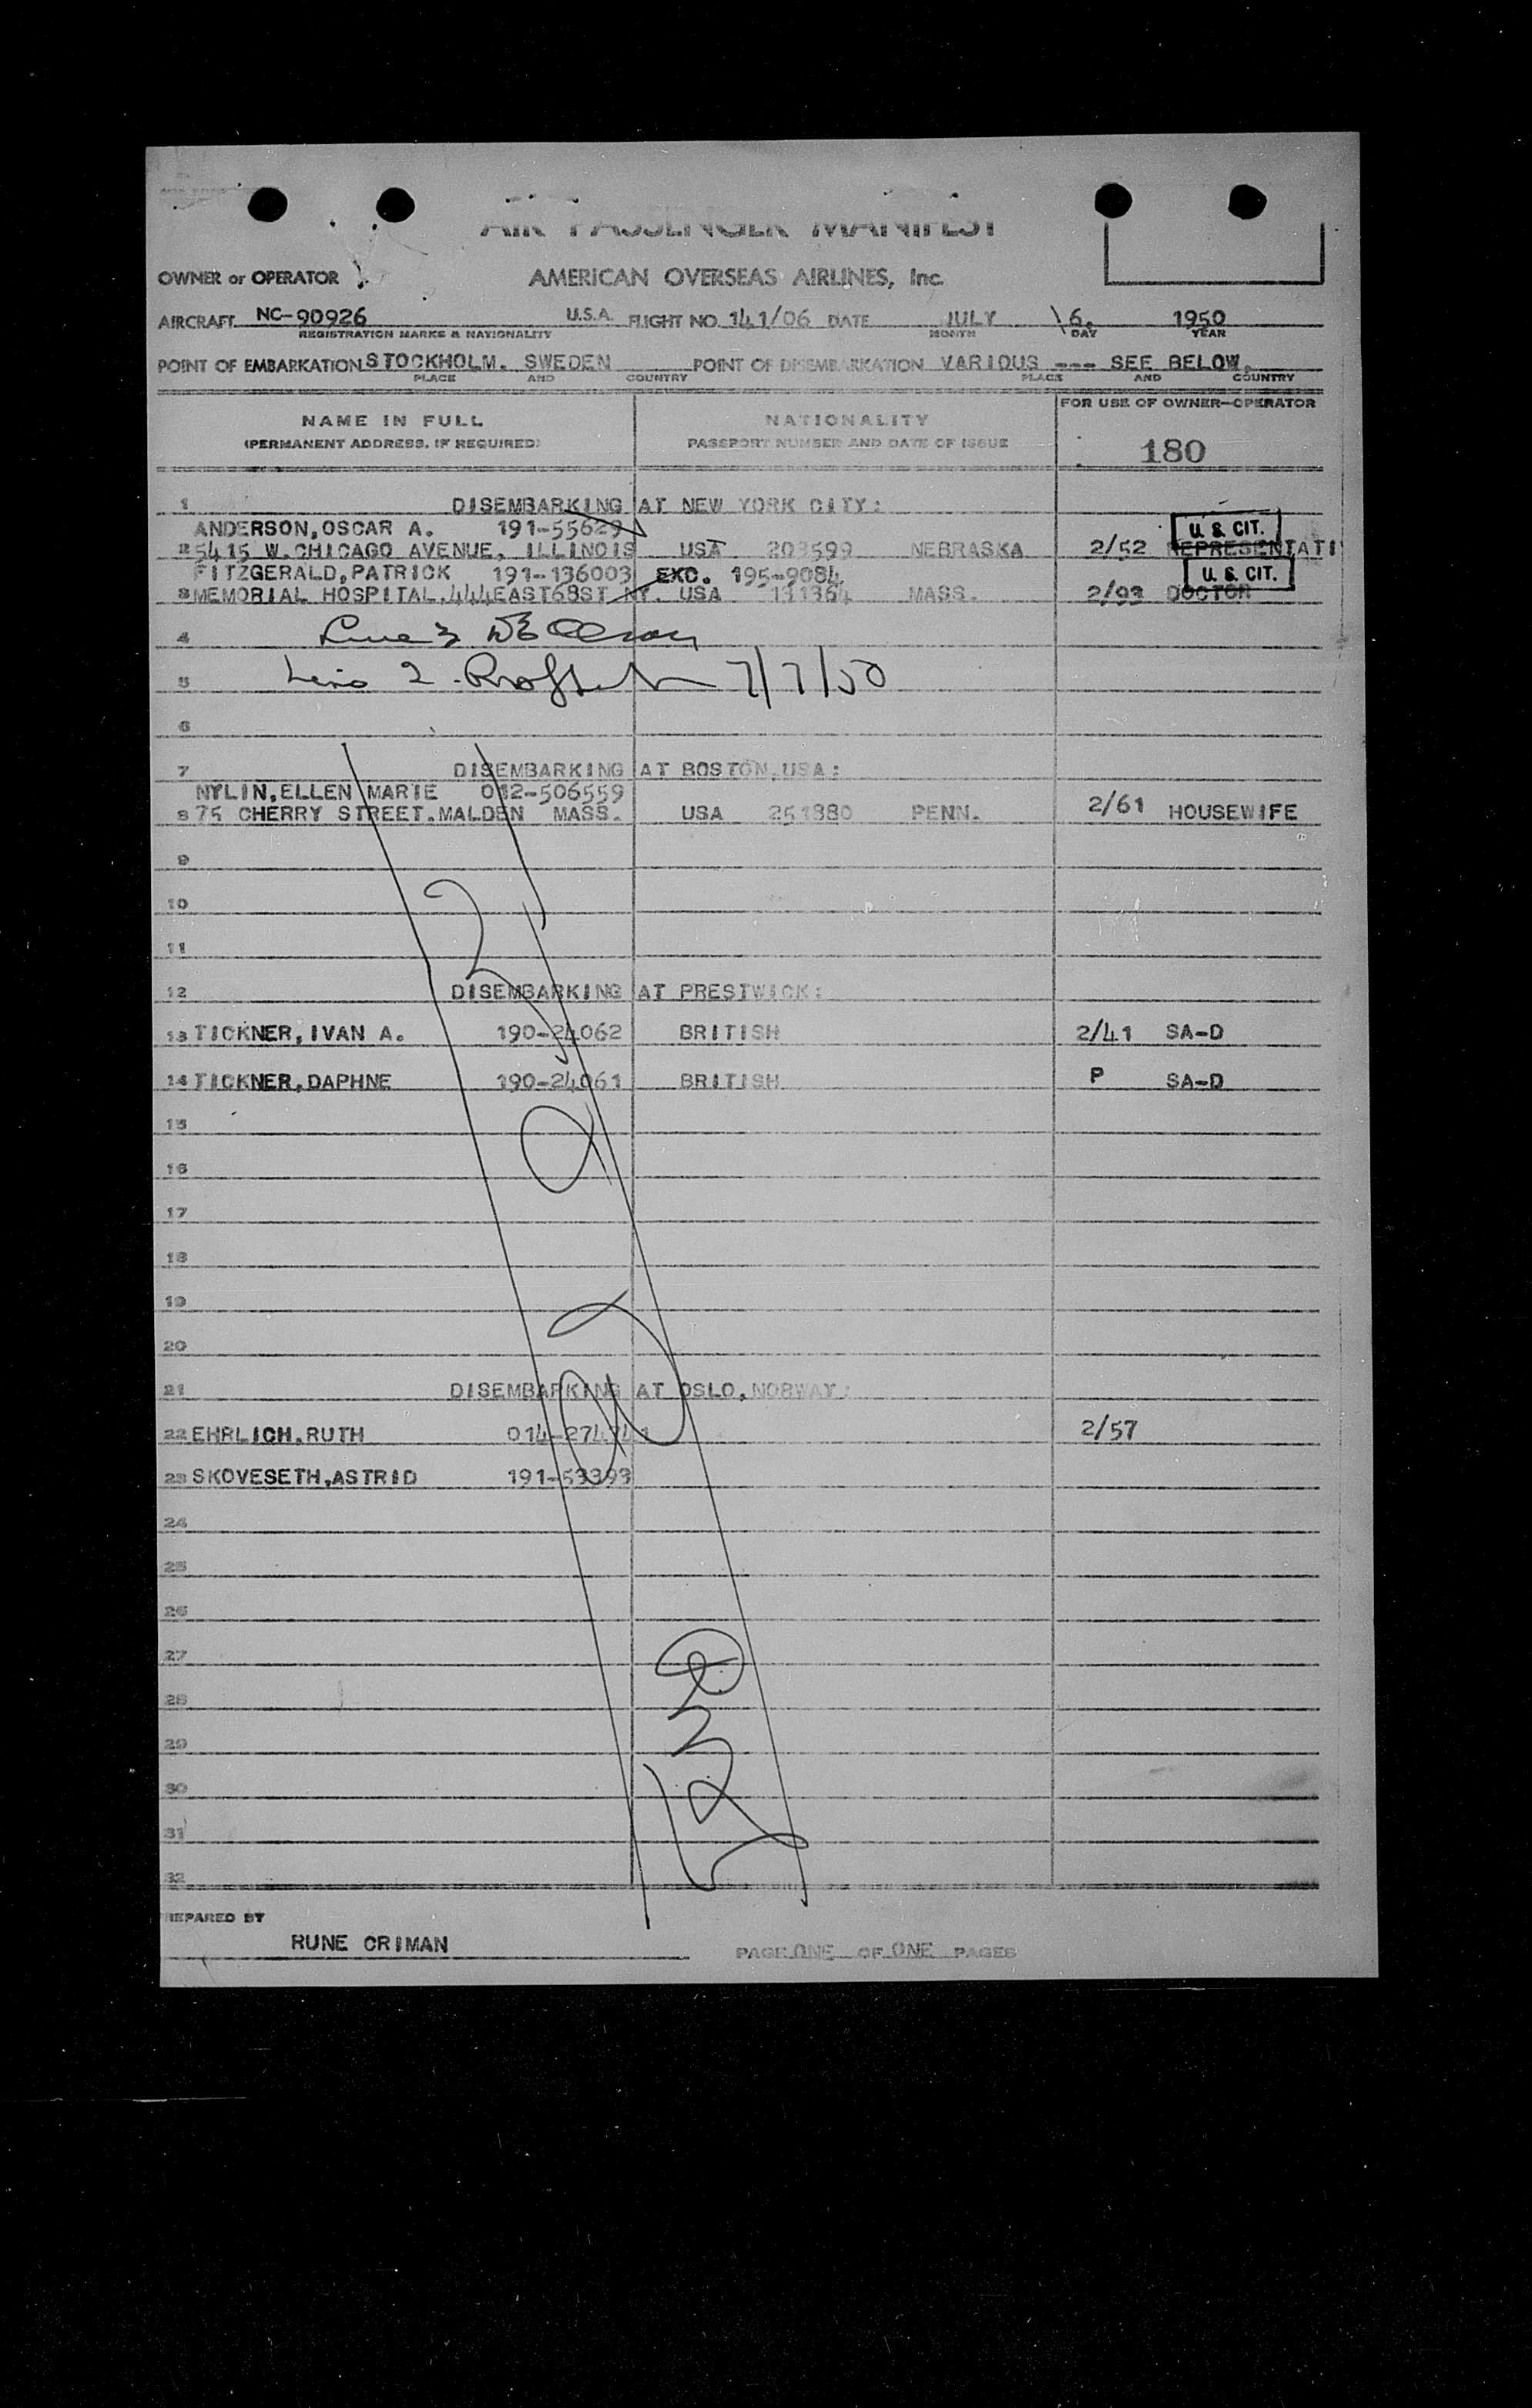 AIR PASSENGER MANIFEST
OWNER or OPERATOR AMERICAN OVERSEAS AIRLINES, Inc.
AIRCRAFT NC-90926 U.S.A. FLIGHT NO. 141/06 DATE JULY 6, 1950
REGISTRATION MARKS & NATIONALITY MONTH DAY YEAR
POINT OF EMBARKATION STOCKHOLM. SWEDEN POINT OF DISEMBARKATION VARIOUS --- SEE BELOW.
PLACE AND COUNTRY PLACE AND COUNTRY
NAME IN FULL NATIONALITY FOR USE OF OWNER-OPERATOR
(PERMANENT ADDRESS, IF REQUIRED) PASSPORT NUMBER AND DATE OF ISSUE 180
1 DISEMBARKING AT NEW YORK CITY:
ANDERSON,OSCAR A. 191-55629 U. S. CIT.
2 5415 W.CHICAGO AVENUE, ILLINOIS USA 203599 NEBRASKA 2/52 REPRESENTATI
FITZGERALD,PATRICK 191-136003 EXC. 195-9084 U. S. CIT.
3 MEMORIAL HOSPITAL.444EAST68ST NY. USA 131364 MASS. 2/93 DOCTOR
4
5 7/7/50
6
7 DISEMBARKING AT BOSTON,USA:
NYLIN,ELLEN MARIE 012-506559
8 75 CHERRY STREET.MALDEN MASS. USA 251880 PENN. 2/61 HOUSEWIFE
9
10
11
12 DISEMBARKING AT PRESTWICK:
13 TICKNER,IVAN A. 190-24062 BRITISH 2/41 SA-D
14 TICKNER,DAPHNE 190-24061 BRITISH P SA-D
15
16
17
18
19
20
21 DISEMBARKING AT OSLO,NORWAY:
22 EHRLICH.RUTH 2/57
23 SKOVESETH,ASTRID 191-53393
24
25
26
27
28
29
30
31
32
PREPARED BY
RUNE CRIMAN PAGE ONE OF ONE PAGES